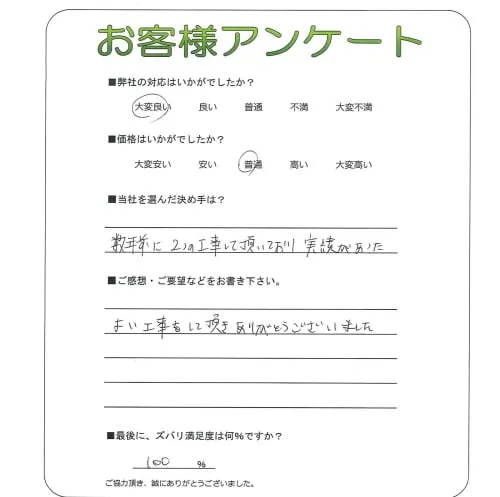 お客様アンケート
■弊社の対応はいかがでしたか？
大変良い 良い 普通 不満 大変不満
■価格はいかがでしたか？
大変安い 安い 普通 高い 大変高い
■当社を選んだ決め手は？
数年前に 2つの工事して頂いており 実績があった
■ご感想・ご要望などをお書き下さい。
よい工事をして頂きありがとうございました
■最後に、ズバリ満足度は何％ですか？
100 ％
ご協力頂き、誠にありがとうございました。